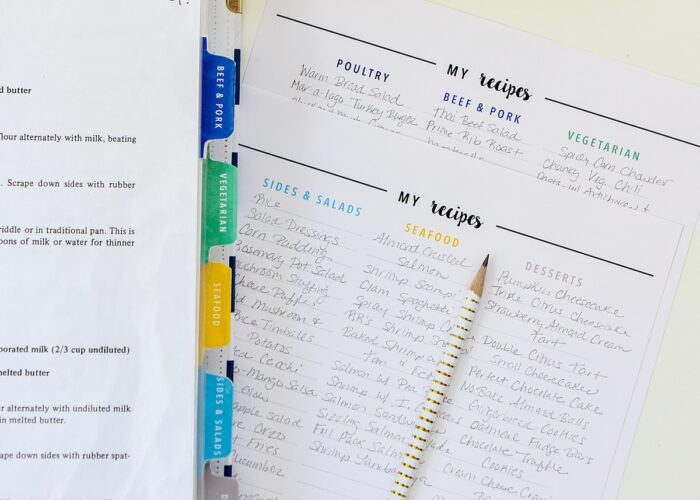 d butter
lour alternately with milk, beating
. Scrape down sides with rubber
riddle or in traditional pan. This is
oons of milk or water for thinner
orated milk (2/3 cup undiluted)
melted butter
r alternately with undiluted milk
in melted butter.
ape down sides with rubber spat-
BEEF & PORK
VEGETARIAN
SEAFOOD
SIDES & SALADS
MY recipes
POULTRY
Warm Bread Salad
Mar-a-lago Turkey Burger
BEEF & PORK
Thai Beef Salad
Prime Rib Roast
VEGETARIAN
Spicy Corn Chowder
Chunky Veg. Chili
Pasta w/ Artichokes &
MY recipes
SIDES & SALADS
Rice
Salad Dressings
Corn Pudding
Rosemary Pot Salad
Mushroom Stuffing
Cheese Puffs
Mushroom &
Rice Timbales
Potatoes
Ceci
-Mango Salsa
Slaw
Salad
Orzo
Fries
Cucumber
SEAFOOD
Almond Crusted
Salmon
Shrimp Scampi
Clam Spaghetti
Spicy Shrimp
Shrimp
Baked Shrimp w/
Tom & Feta
Salmon w/
Shrimp w/
Salmon Sandwich
Sizzling Salmon
Full Pack Salmon
Shrimp
DESSERTS
Pumpkin Cheesecake
Triple Citrus Cheesecake
Strawberry Almond Cream
Tart
Double Citrus Tart
Small Cheesecakes
Perfect Chocolate Cake
No Bake Almond Balls
Gingerbread Cookies
Oatmeal Fudge Bars
Chocolate Truffle
Cookies
Cream Cheese